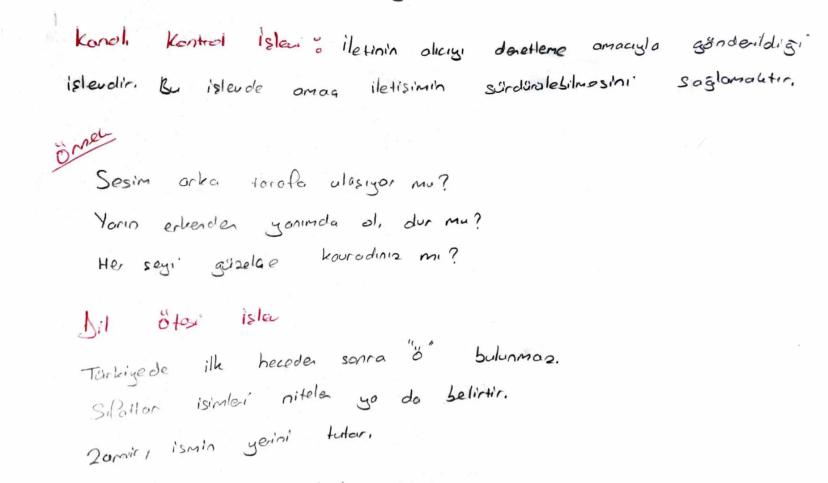 Kanalı Kontrol İşlevi : İletinin alıcıyı denetleme amacıyla gönderildiği
işlevdir. Bu işlevde amaç iletişimin sürdürülebilmesini sağlamaktır.
Örnek
Sesim arka tarafa ulaşıyor mu?
Yarın erkenden yanımda ol, dur mu?
Her şeyi güzelce kavradınız mı?
Dil ötesi işlev
Türkiyede ilk heceden sonra "ö" bulunmaz.
Sıfatlar isimleri niteler ya da belirtir.
Zamir, ismin yerini tutar.